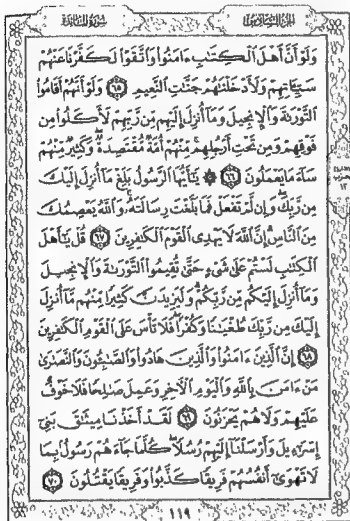 الجزء السادس سورة المائدة
وَلَوْ أَنَّ أَهْلَ الْكِتَٰبِ ءَامَنُوا وَاتَّقَوْا لَكَفَّرْنَا عَنْهُمْ
سَيِّـَٔاتِهِمْ وَلَأَدْخَلْنَٰهُمْ جَنَّٰتِ النَّعِيمِ ٦٥ وَلَوْ أَنَّهُمْ أَقَامُوا
التَّوْرَىٰةَ وَالْإِنجِيلَ وَمَا أُنزِلَ إِلَيْهِم مِّن رَّبِّهِمْ لَأَكَلُوا مِن
فَوْقِهِمْ وَمِن تَحْتِ أَرْجُلِهِم مِّنْهُمْ أُمَّةٌ مُّقْتَصِدَةٌ وَكَثِيرٌ مِّنْهُمْ
سَاءَ مَا يَعْمَلُونَ ٦٦ ۞ يَٰأَيُّهَا الرَّسُولُ بَلِّغْ مَا أُنزِلَ إِلَيْكَ
مِن رَّبِّكَ وَإِن لَّمْ تَفْعَلْ فَمَا بَلَّغْتَ رِسَالَتَهُۥ وَاللَّهُ يَعْصِمُكَ
مِنَ النَّاسِ إِنَّ اللَّهَ لَا يَهْدِى الْقَوْمَ الْكَٰفِرِينَ ٦٧ قُلْ يَٰأَهْلَ
الْكِتَٰبِ لَسْتُمْ عَلَىٰ شَىْءٍ حَتَّىٰ تُقِيمُوا التَّوْرَىٰةَ وَالْإِنجِيلَ
وَمَا أُنزِلَ إِلَيْكُم مِّن رَّبِّكُمْ وَلَيَزِيدَنَّ كَثِيرًا مِّنْهُم مَّا أُنزِلَ
إِلَيْكَ مِن رَّبِّكَ طُغْيَٰنًا وَكُفْرًا فَلَا تَأْسَ عَلَى الْقَوْمِ الْكَٰفِرِينَ
٦٨ إِنَّ الَّذِينَ ءَامَنُوا وَالَّذِينَ هَادُوا وَالصَّٰبِـُٔونَ وَالنَّصَٰرَىٰ
مَنْ ءَامَنَ بِاللَّهِ وَالْيَوْمِ الْءَاخِرِ وَعَمِلَ صَٰلِحًا فَلَا خَوْفٌ
عَلَيْهِمْ وَلَا هُمْ يَحْزَنُونَ ٦٩ لَقَدْ أَخَذْنَا مِيثَٰقَ بَنِى
إِسْرَٰءِيلَ وَأَرْسَلْنَا إِلَيْهِمْ رُسُلًا كُلَّمَا جَاءَهُمْ رَسُولٌ بِمَا
لَا تَهْوَىٰ أَنفُسُهُمْ فَرِيقًا كَذَّبُوا وَفَرِيقًا يَقْتُلُونَ ٧٠
١١٩